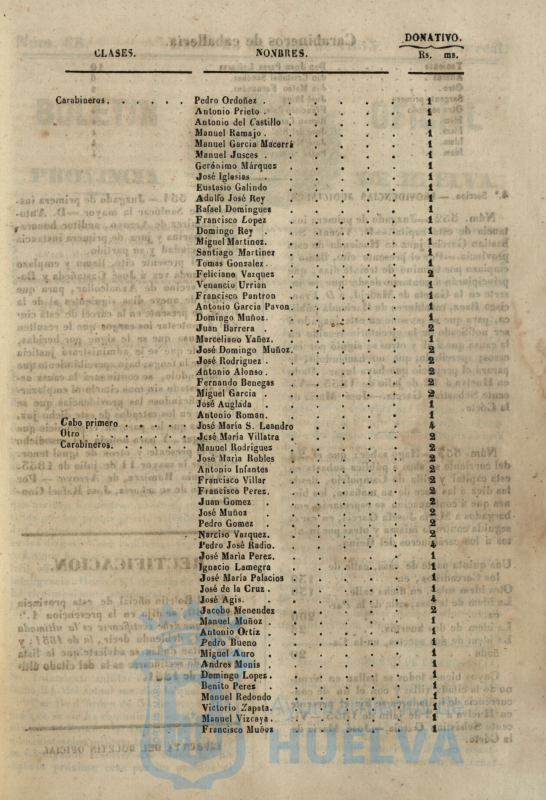 DONATIVO.
CLASES. NONBRES. Rs. ms.
Carabineros. . . . . . Pedro Ordoñez . 1
Antonio Prieto . 1
Antonio del Castillo . 1
Manuel Ramajo . 1
Manuel Garcia Macerrá 1
Manuel Jusces . 1
Gerónimo Márquez 1
José Iglesias 1
Eustasio Galindo 1
Adolfo José Rey 1
Rafael Domingues 1
Francisco Lopez 1
Domingo Rey . 1
Miguel Martinez. 1
Santiago Martinez 1
Tomas Gonzalez . 1
Feliciano Vazquez 2
Venancio Urrian 1
Francisco Pantron 1
Antonio Garcia Pavon 1
Domingo Muñoz. 1
Juan Barrera . 2
Marceliano Yañez. 1
José Domingo Muñoz. 2
José Rodriguez . 2
Antonio Alonso . 2
Fernando Benegas 2
Miguel Garcia . 2
José Auglada . 1
Antonio Roman. 1
Cabo primero . . . . . José María S. Leandro 4
Otro . . . . . José Maria Villatra 2
Carabineros. . . . . Manuel Rodriguez 2
José Maria Robles 2
Antonio Infantes 2
Francisco Villar 2
Francisco Perez. 2
Juan Gomez . 2
José Muñoz . 2
Pedro Gomez . 2
Narciso Vazquez. 2
Pedro José Radio. 4
José Maria Perez. 1
Ignacio Lamegra 1
José María Palacios 1
José de la Cruz . 1
José Agis. 4
Jacobo Menendez 2
Manuel Muñoz 1
Antonio Ortiz . 1
Pedro Bueno . 1
Miguel Auro . 1
Andres Monis . 1
Domingo Lopes. 1
Benito Perez . 1
Manuel Redondo 1
Victorio Zapata. 1
Manuel Vizcaya. 1
Francisco Muñoz 1
HUELVA